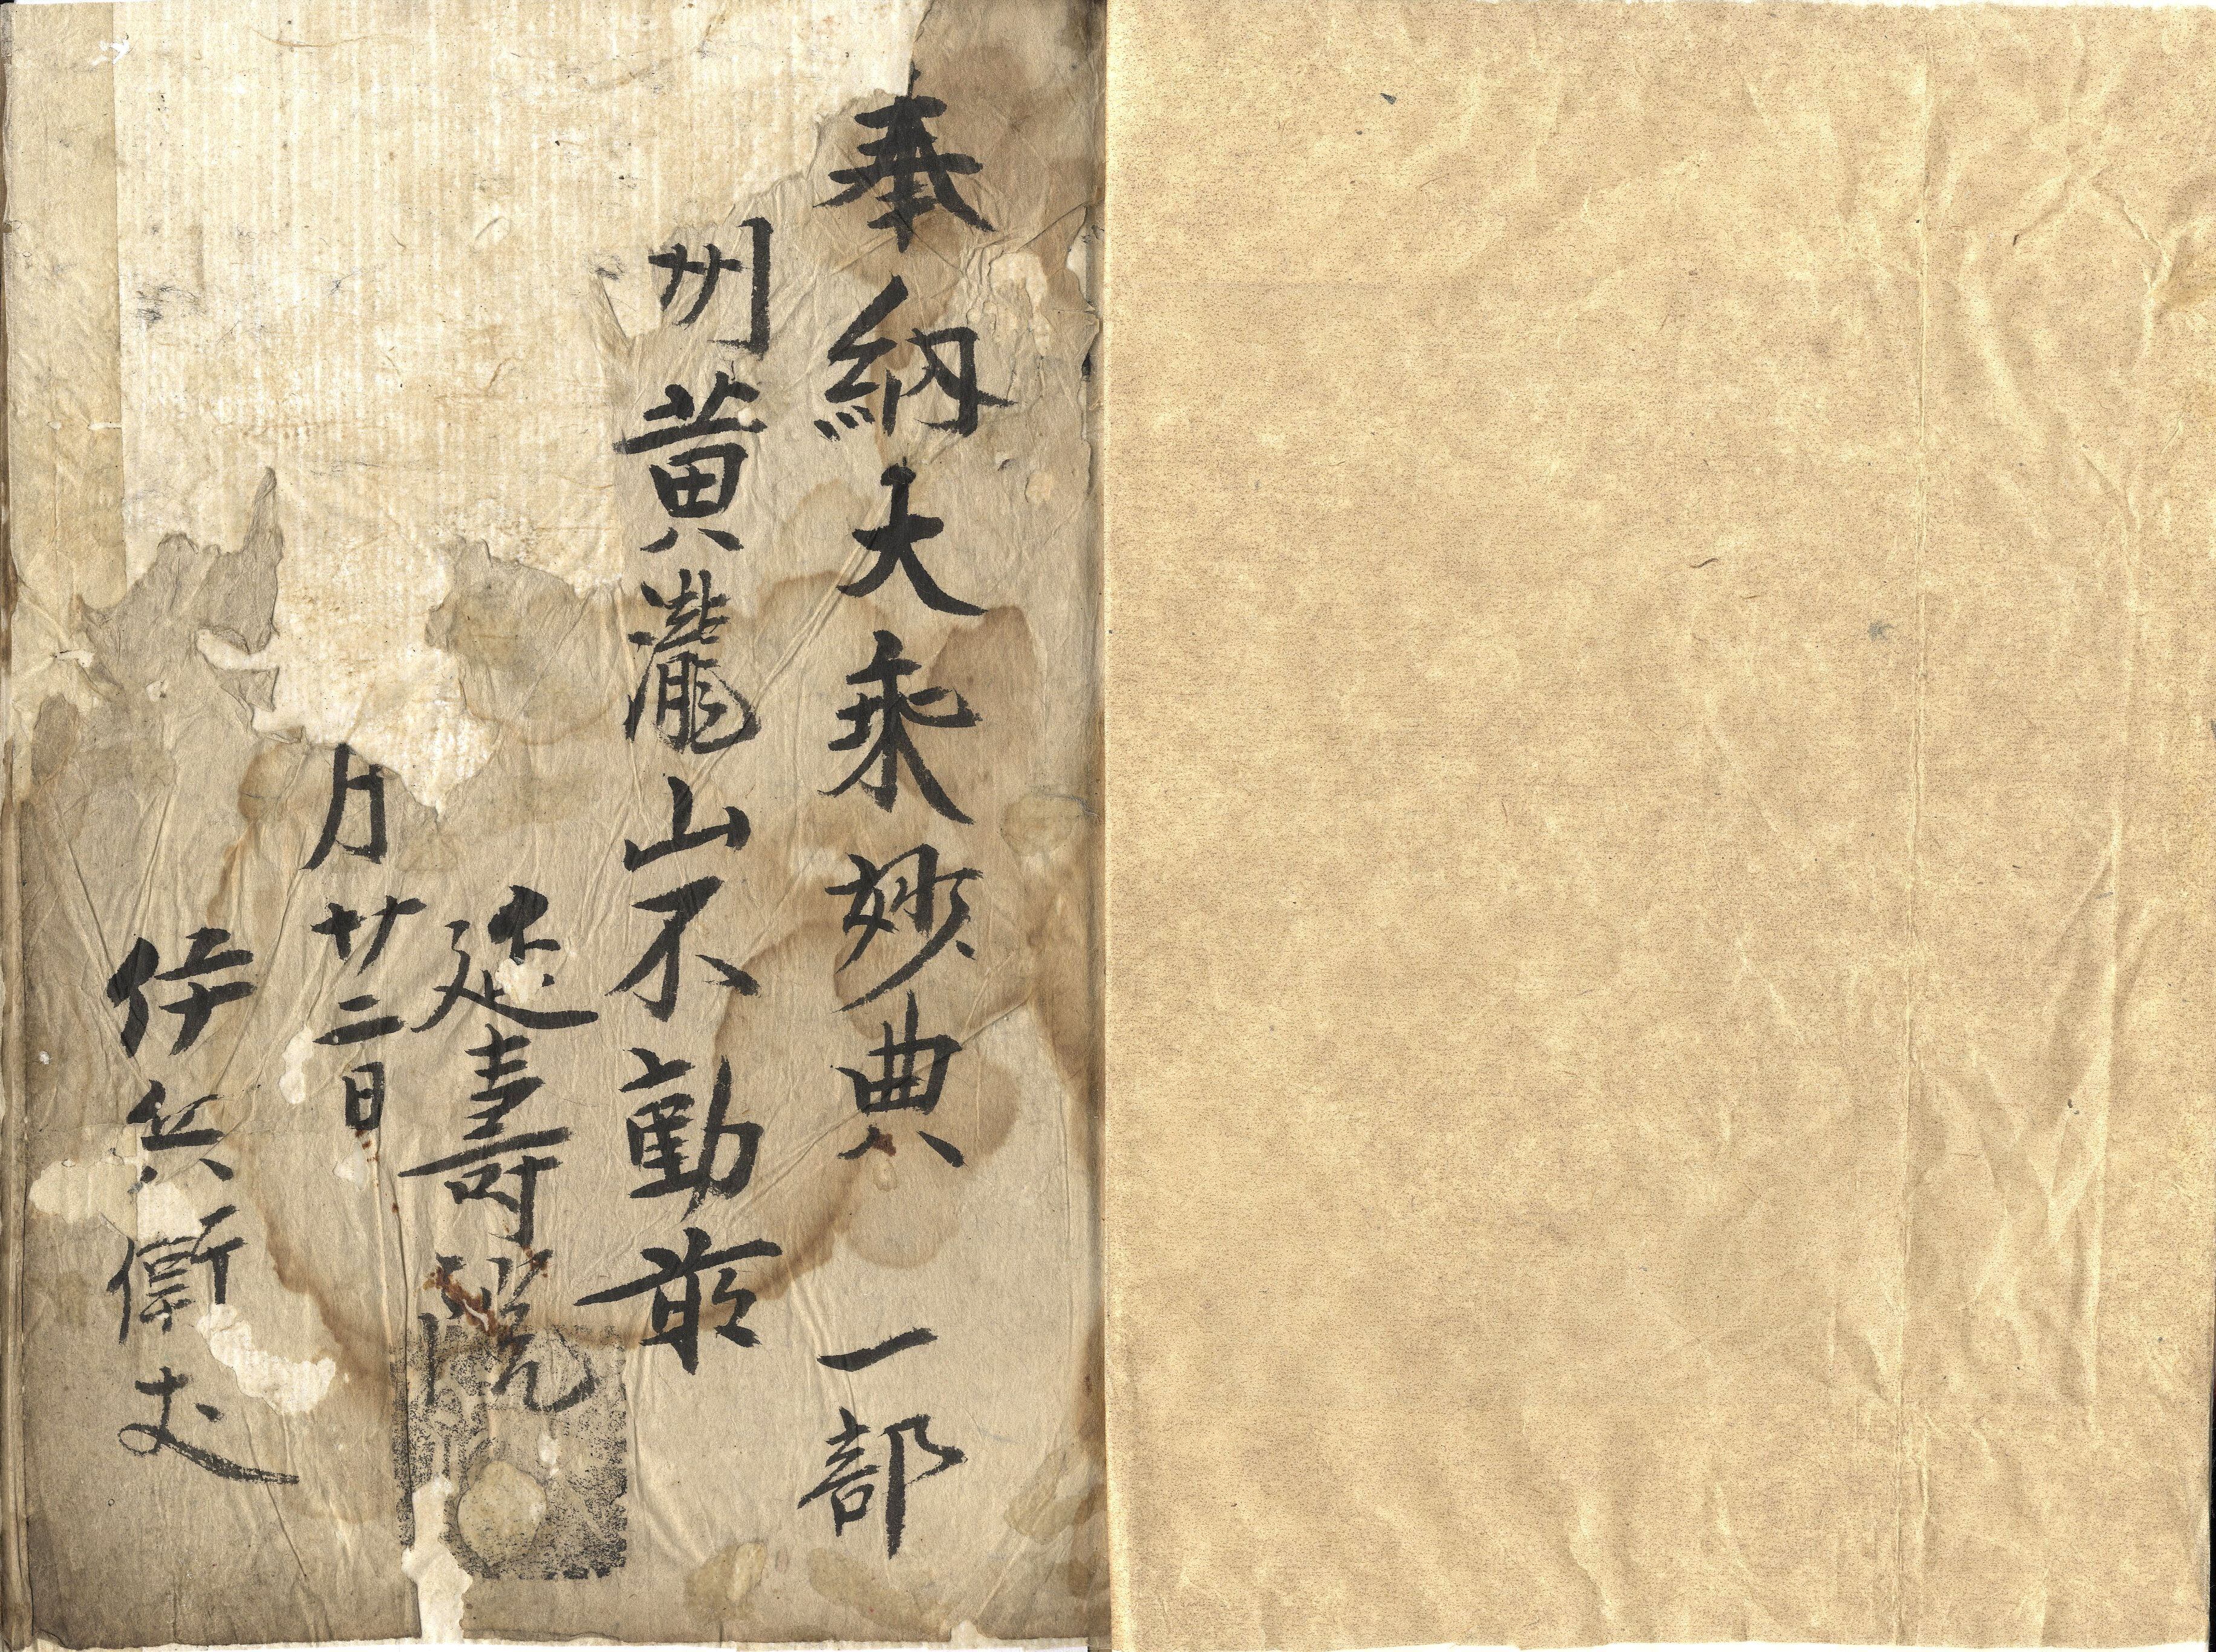 奉納大乘妙典一部
州黄瀧山不動前
延壽院
月廿二日
伊兵衛丈